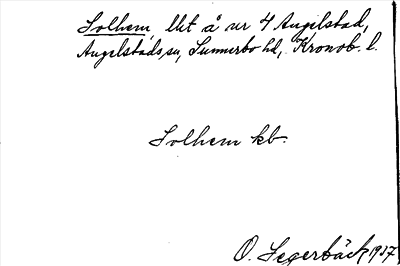 Solhem, lht å nr 4 Angelstad,
Angelstads sn, Sunnerbo hd, Kronob. l.
Solhem kb.
O. Segerbäck 1937